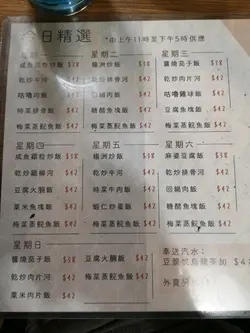 今日精選 *由上午11時至下午5時供應
星期一
咸魚雞粒炒飯 $38
乾炒牛河 $42
咕嚕肉飯 $42
時菜排骨飯 $42
梅菜蒸鯇魚飯 $42
星期二
楊洲炒飯 $38
豉椒排骨河 $42
肉飯 $42
糖醋魚塊飯 $42
梅菜蒸鯇魚飯 $42
星期三
醬燒茄子飯 $38
乾炒肉片河 $42
咕嚕雞球飯 $42
豆腐魚塊飯 $42
梅菜蒸鯇魚飯 $42
星期四
咸魚雞粒炒飯 $38
乾炒雞柳河 $42
豆腐火腩飯 $42
粟米魚塊飯 $42
梅菜蒸鯇魚飯 $42
星期五
楊洲炒飯 $38
乾炒牛河 $42
時菜牛肉飯 $42
蝦仁炒蛋飯 $42
梅菜蒸鯇魚飯 $42
星期六
麻婆豆腐飯 $38
乾炒排骨河 $42
回鍋肉飯 $42
糖醋魚塊飯 $42
梅菜蒸鯇魚飯 $42
星期日
醬燒茄子飯 $38
乾炒肉片河 $42
粟米肉片飯 $42
豆腐火腩飯 $42
梅菜蒸鯇魚飯 $42
奉送汽水:
豆漿飲烏龍茶加 $4
外賣